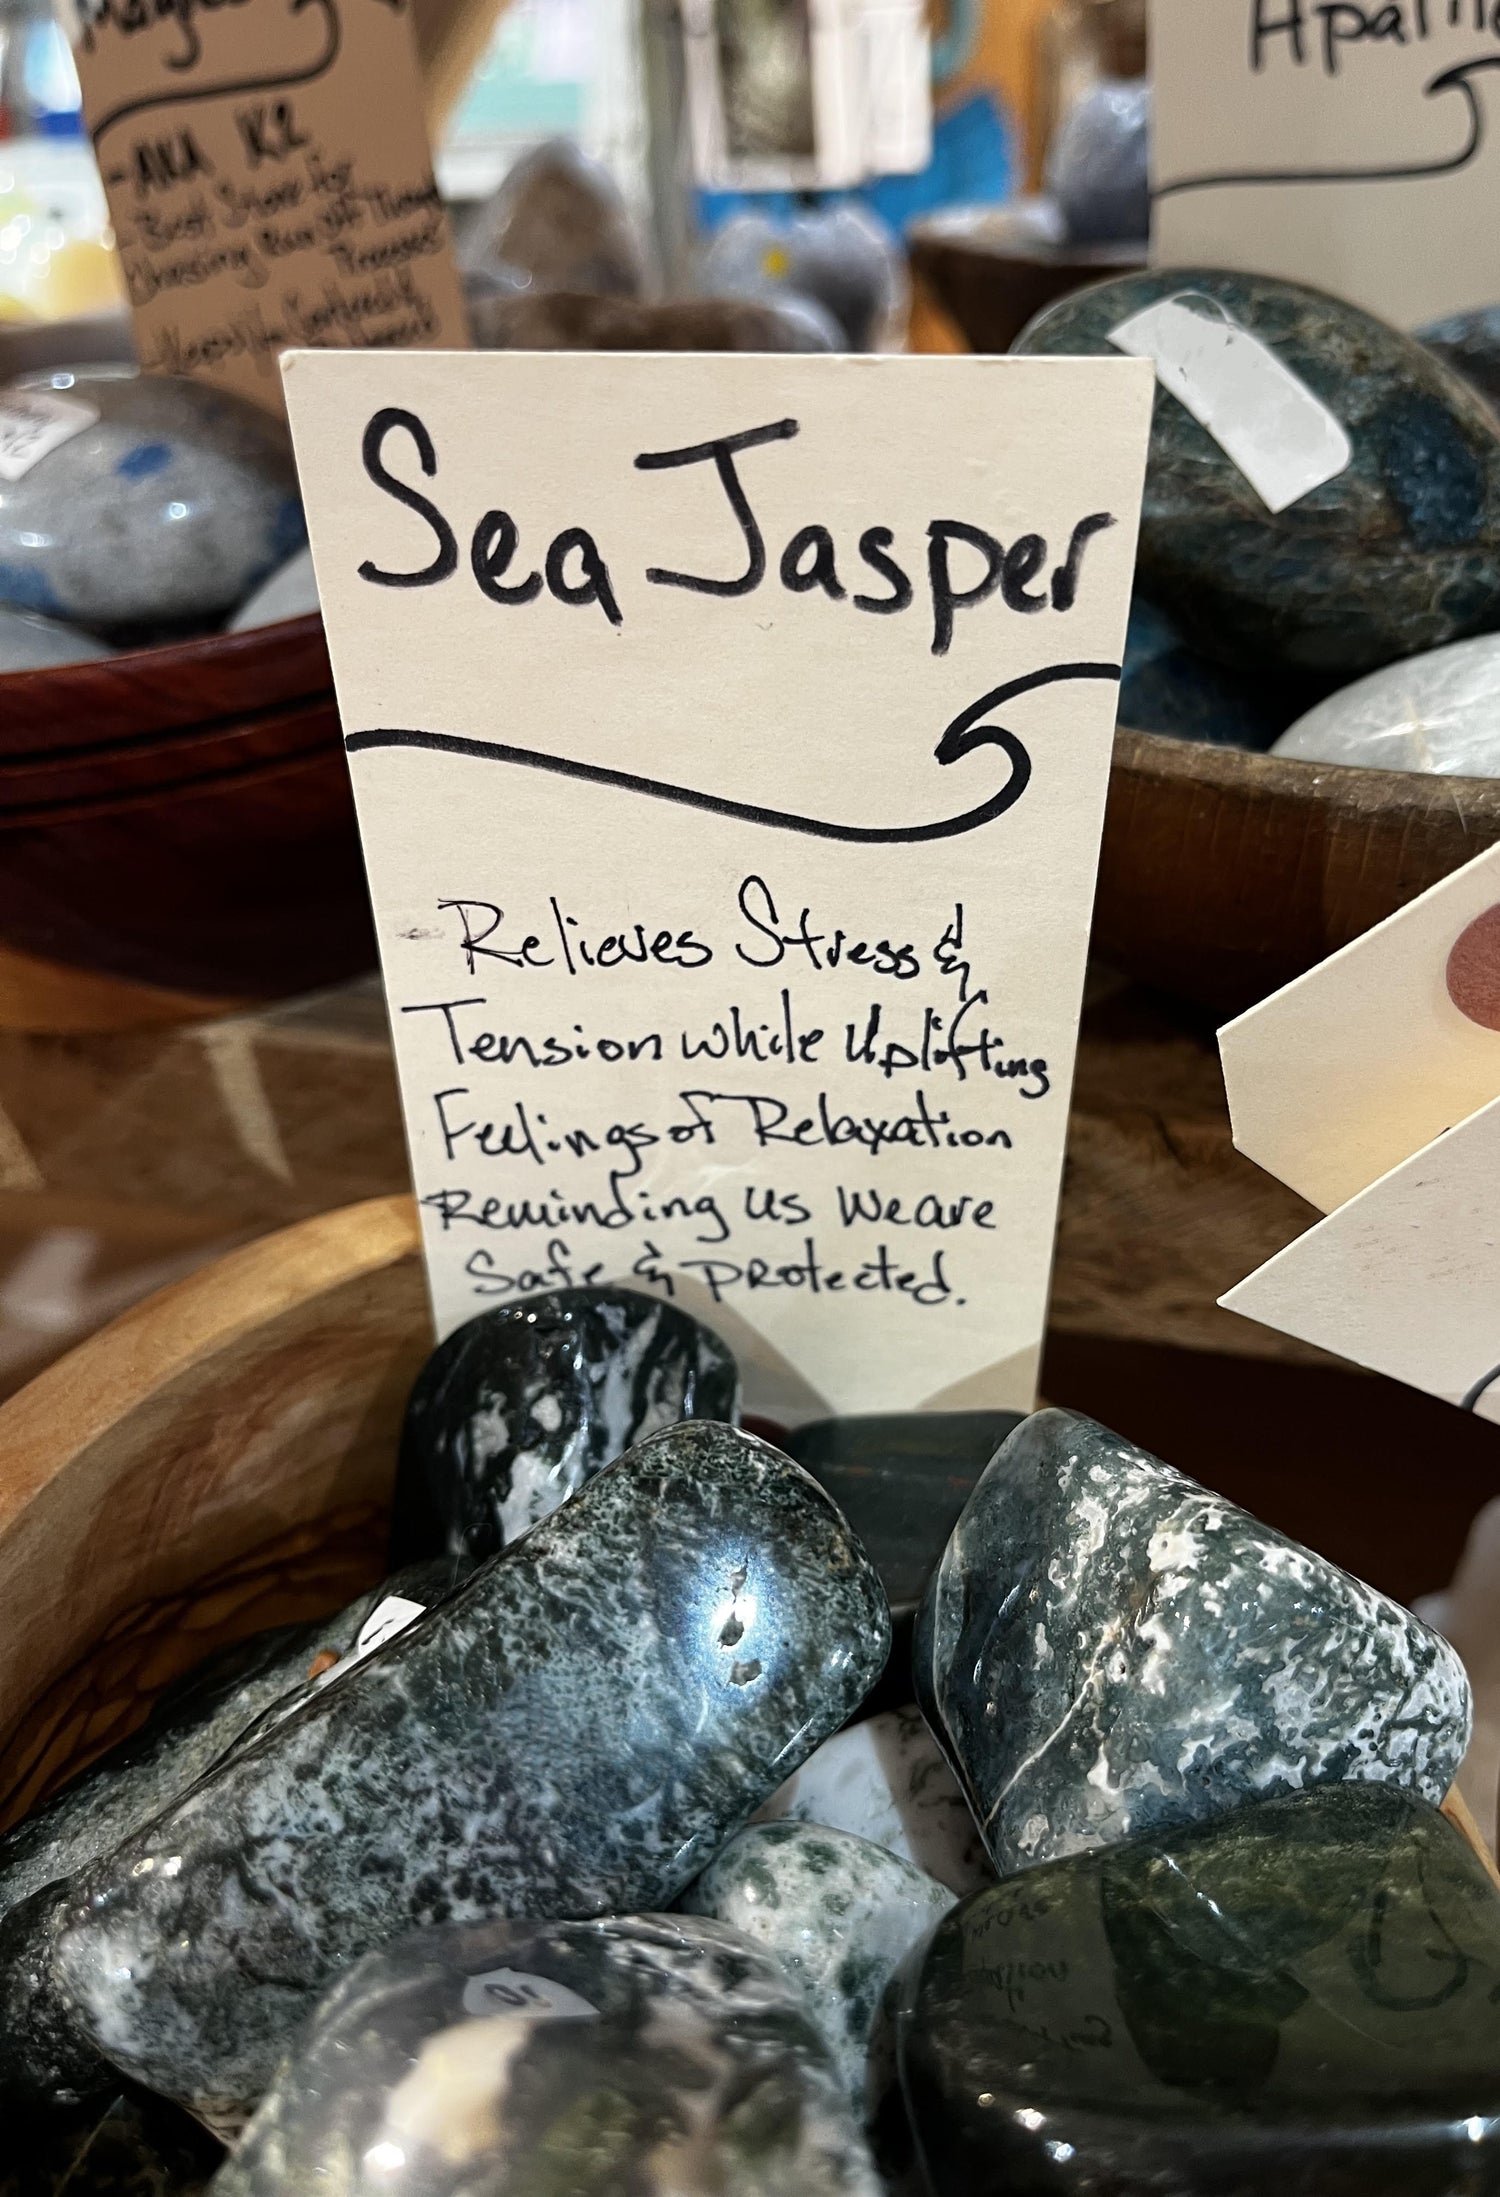 -AKA K2
-Best Stone for
Apatite
Sea Jasper
- Relieves Stress &
Tension while Uplifting
Feelings of Relaxation
Reminding us We are
Safe & Protected.